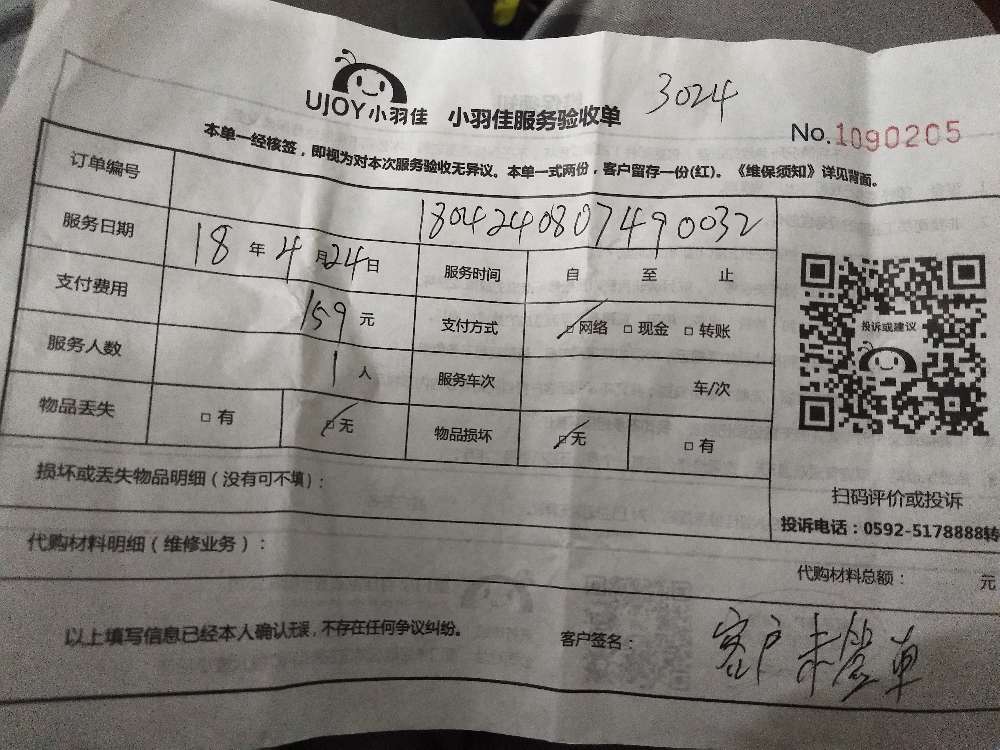 UJOY小羽佳 小羽佳服务验收单 3024
No.1090205
本单一经核签，即视为对本次服务验收无异议。本单一式两份，客户留存一份(红)。《维保须知》详见背面。
订单编号 1804240807490032
服务日期 18年4月24日 服务时间 自 至 止
支付费用 159元 支付方式 □网络 □现金 □转账
服务人数 1人 服务车次 车/次
物品丢失 □有 □无 物品损坏 □无 □有
投诉或建议
扫码评价或投诉
投诉电话：0592-5178888转
损坏或丢失物品明细（没有可不填）：
代购材料明细（维修业务）：
代购材料总额： 元
以上填写信息已经本人确认无误，不存在任何争议纠纷。 客户签名： 客户未签单